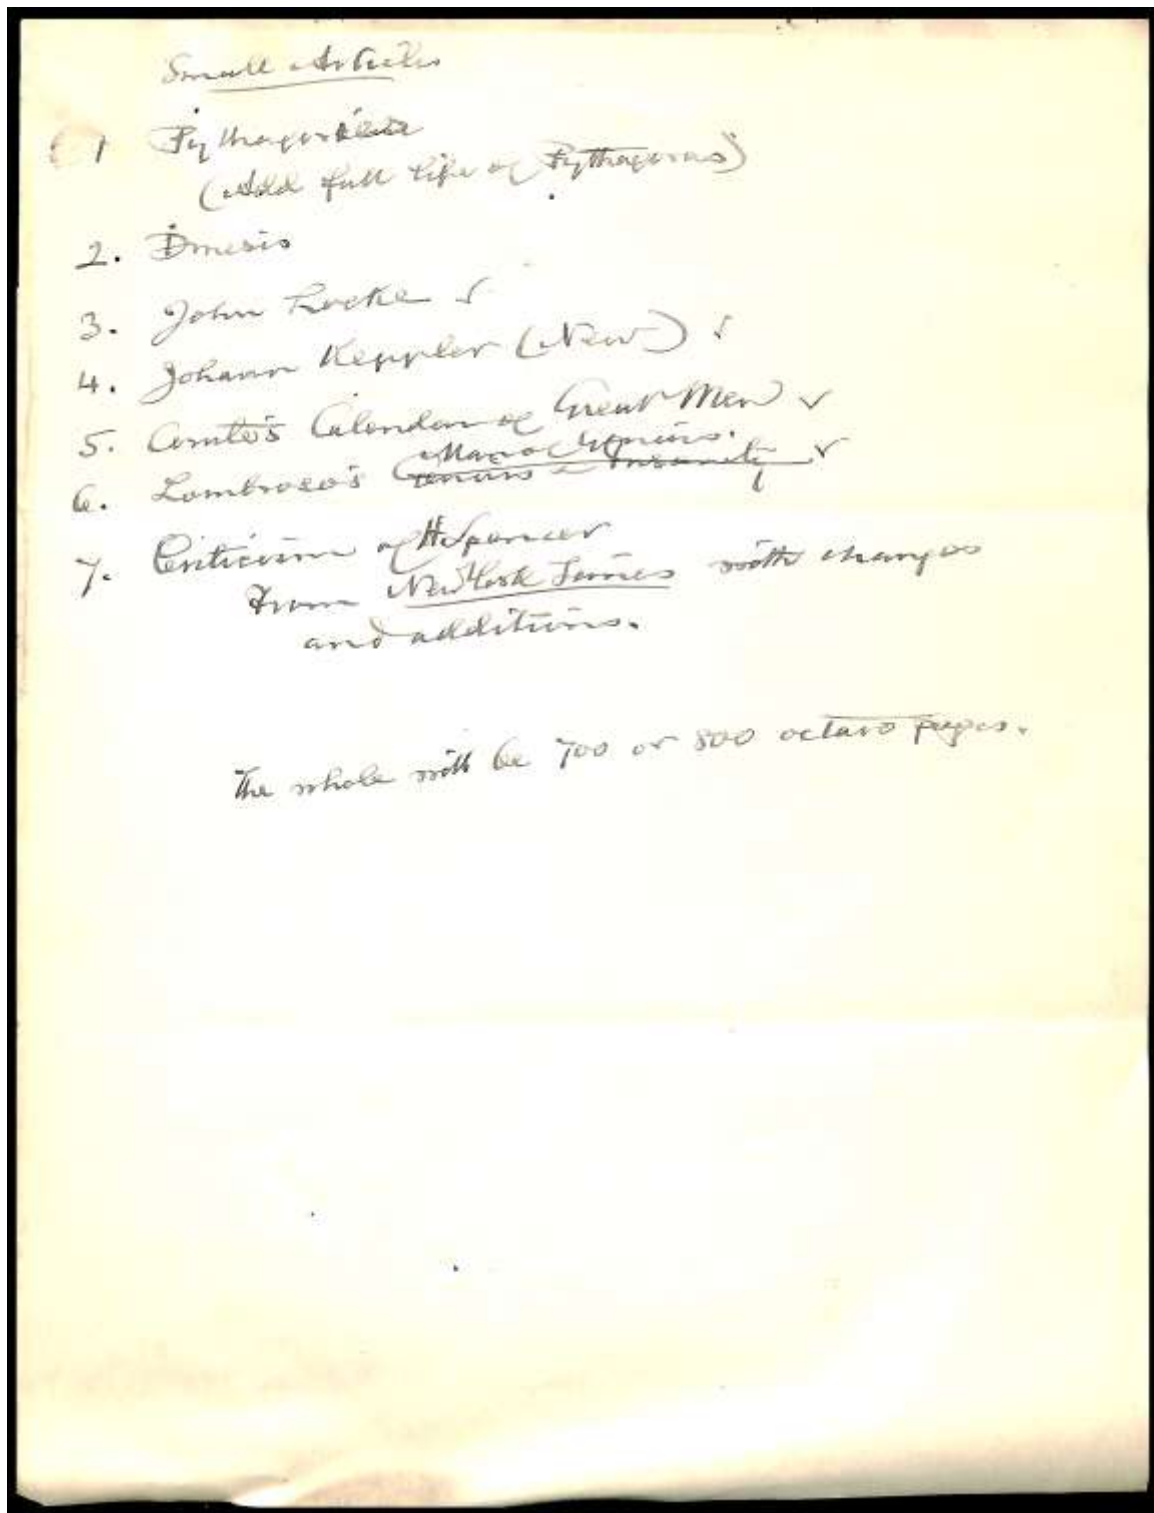 Small Articles
1 Pythagorean
(Add full life of Pythagoras)
2. Dmesis
3. John Locke ✓
4. Johann Keppler (New) ✓
5. Comte's Calendar of Great Men ✓
Man of Genius.
6. Lombroso's Genius & Insanity ✓
7. Criticism of H Spencer
from New York Times with changes
and additions.
The whole will be 700 or 800 octavo pages.